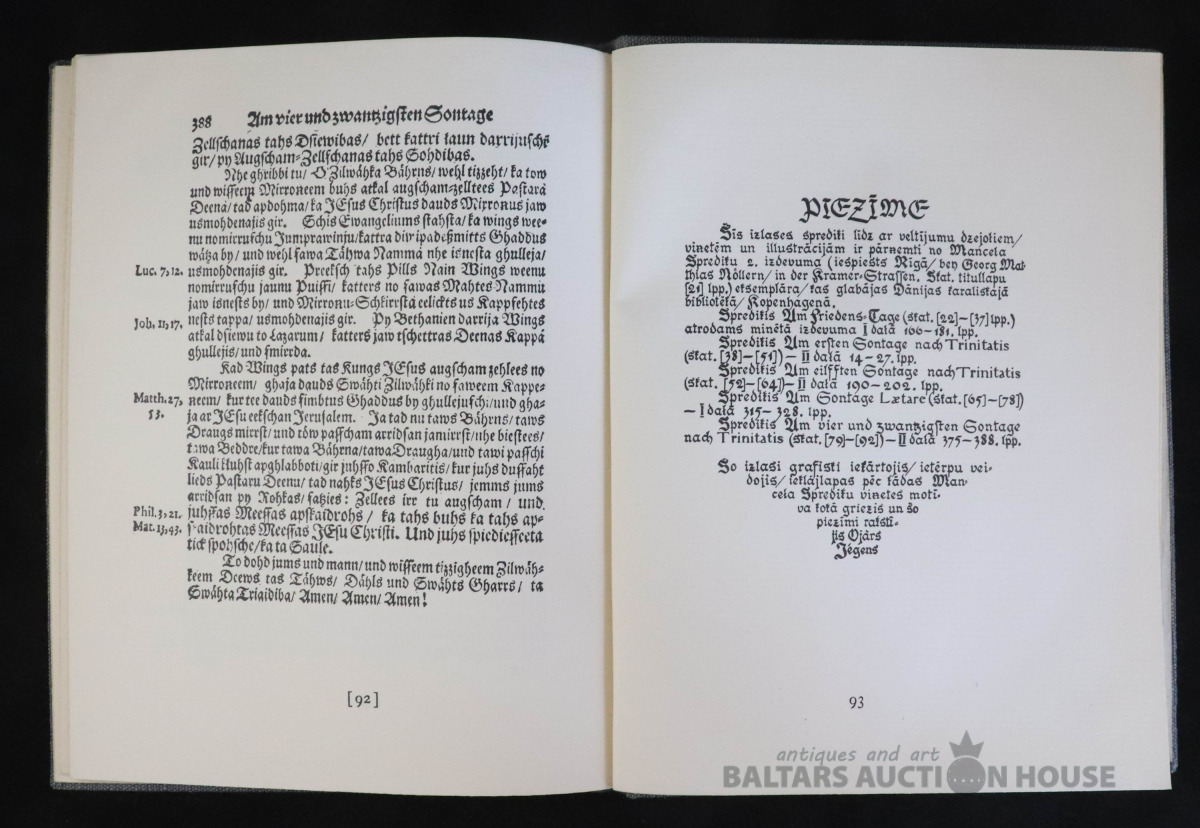 388 Am vier und zwantzigsten Sontage
Zellschanas tahs Dsiewibas/ bett kattri łaun darrijuschi
gir/ py Augscham-Zellschanas tahs Sohdibas.
Nhe ghribbi tu/ O Zilwähka Bährns/ wehl tizzeht/ ka tow
und wisseem Mirroneem buhs atkal augscham-zelltees Pastarâ
Deenâ/ tad apdohma/ ka JEsus Christus dauds Mirronus jaw
usmohdenajis gir. Schis Ewangeliums stahsta/ ka wings wee-
nu nomirruschu Jumprawinju/ kattra diwipadeßmitts Ghaddus
wätza by/ und wehl sawa Tähwa Nammâ nhe isnesta ghulleja/
Luc. 7,12. usmohdenajis gir. Preeksch tahs Pills Nain Wings weenu
nomirruschu jaunu Puissi/ katters no sawas Mahtes Nammu
jaw isnests by/ und Mirronu-Schkirrstâ eelickts us Kappsehtes
Joh. 11,17. nests tappa/ usmohdenajis gir. Py Bethanien darrija Wings
atkal dsiewu to Lazarum/ katters jaw tschettras Deenas Kappâ
ghullejis/ und smirrda.
Kad Wings pats tas Kungs JEsus augscham zehlees no
Mirroneem/ ghaja dauds Swähti Zilwähki no saweem Kappe-
Matth. 27, neem/ kur tee dauds simbtus Ghaddus by ghullejuschi/ und gha-
53. ja ar JEsu eekschan Jerusalem. Ja tad nu taws Bährns/ taws
Draugs mirrst/ und töw passcham arridsan jamirrst/ nhe biestees/
tawa Beddre/ kur tawa Bährna/ tawa Draugha/ und tawi passchi
Kauli kluhst apghlabboti/ gir juhsso Kambaritis/ kur juhs dussaht
lieds Pastaru Deenu/ tad nahks JEsus Christus/ jemms jums
arridsan py Rohkas/ satzies: Zellets irr tu augscham/ und
Phil. 3,21. juhssas Meessas apskaidrohs/ ka tahs buhs ka tahs ap-
Mat. 13,43. skaidrohtas Meessas JEsu Christi. Und juhs spiediesseeta
tick spohsche/ ka ta Saule.
To dohd jums und mann/ und wisseem tizzigheem Zilwäh-
keem Deews tas Tähws/ Dähls und Swähts Gharrs/ ta
Swähta Triaidiba/ Amen/ Amen/ Amen!
[92]
PIEZĪME
Šīs izlases sprediķi līdz ar veltījumu dzejoļiem/
viņetēm un illustrācijām ir pārņemti no Manceļa
Sprediķu 2. izdevuma (iespiests Rīgā/ bey Georg Mat-
thias Nöllern/ in der Kramer-Strassen. Skat. titullapu
[21] lpp.) eksemplāra/ kas glabājas Dānijas karaliskajā
bibliotēkā/ Kopenhagenā.
Sprediķis Am Friedens-Tage (skat. [22]–[37] lpp.)
atrodams minētā izdevuma I daļā 166–181. lpp.
Sprediķis Am ersten Sontage nach Trinitatis
(skat. [38]–[51]) – II daļā 14–27. lpp.
Sprediķis Am eilfften Sontage nach Trinitatis
(skat. [52]–[64]) – II daļā 190–202. lpp.
Sprediķis Am Sontage Lætare (skat. [65]–[78])
– I daļā 315–328. lpp.
Sprediķis Am vier und zwantzigsten Sontage
nach Trinitatis (skat. [79]–[92]) – II daļā 375–388. lpp.
Šo izlasi grafiski iekārtojis/ ietērpu vei-
dojis/ ieklājlapas pēc kādas Man-
ceļa Sprediķu viņetes motī-
va kokā griezis un šo
piezīmi rakstī-
jis Ojārs
Jēgens
93
antiques and art
BALTARS AUCTION HOUSE